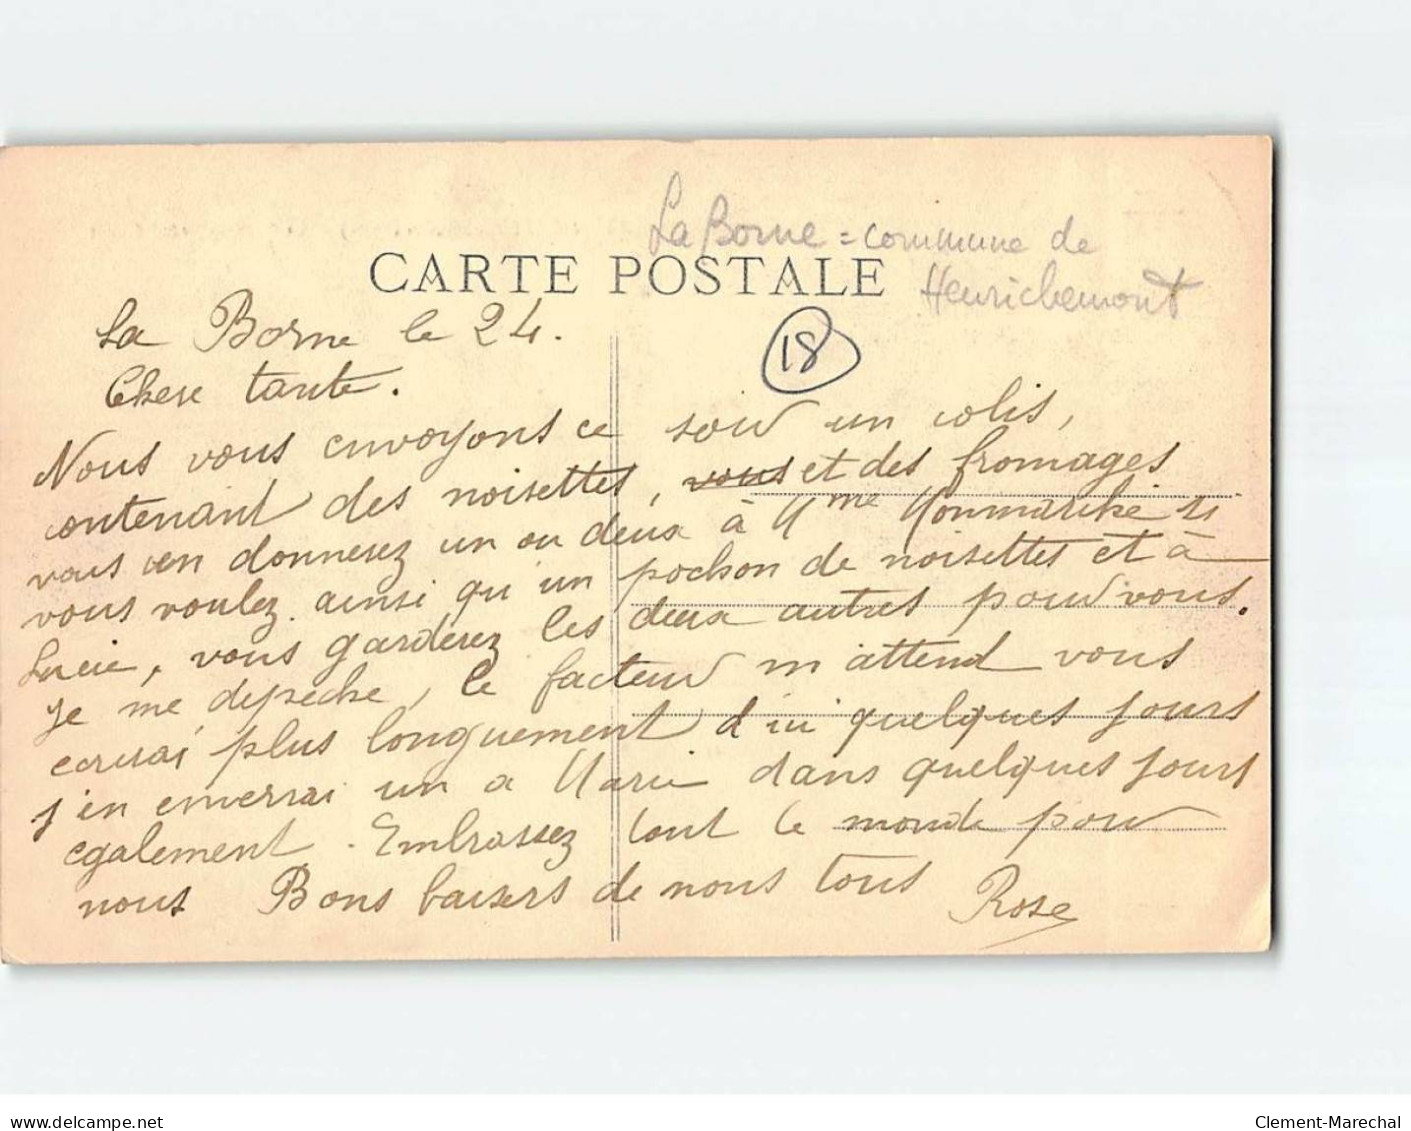 La Borne = commune de
Henrichemont
CARTE POSTALE
18
La Borne le 24.
Chere tante.
Nous vous envoyons ce soir un colis,
contenant des noisettes, vous et des fromages
vous en donnerez un ou deux à Mme Monmarché si
vous voulez. ainsi qu'un pochon de noisettes et à
Lucie, vous garderez les deux autres pour vous.
Je me depeche, le facteur m'attend vous
ecrirai plus longuement d'ici quelques jours
j'en enverrai un a Marie dans quelques jours
egalement. Embrassez tout le monde pour
nous Bons baisers de nous tous
Rose
www.delcampe.net
Clement-Marechal